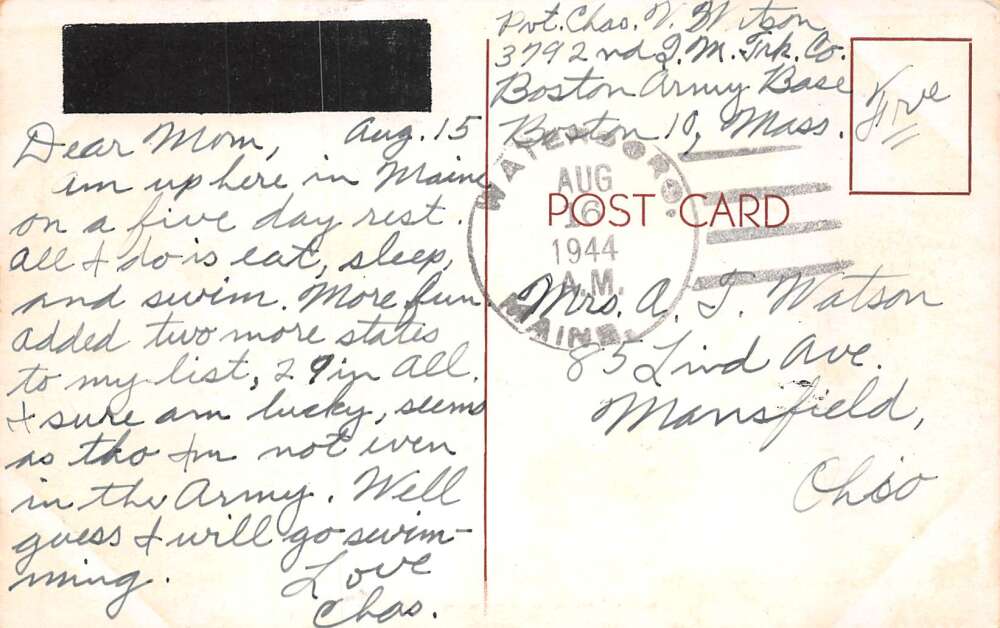 Dear Mom, Aug. 15
Am up here in Maine
on a five day rest.
All I do is eat, sleep,
and swim. More fun.
Added two more states
to my list, 29 in all.
I sure am lucky, seems
as tho I'm not even
in the Army. Well
guess I will go swim-
ming.
Love
Chas.
Pvt. Chas. V. Watson
3792nd Q.M. Trk. Co.
Boston Army Base
Boston 10, Mass.
Free
WATERBORO.
AUG
16
1944
A.M.
MAINE.
POST CARD
Mrs. A. T. Watson
85 Lind Ave.
Mansfield,
Ohio